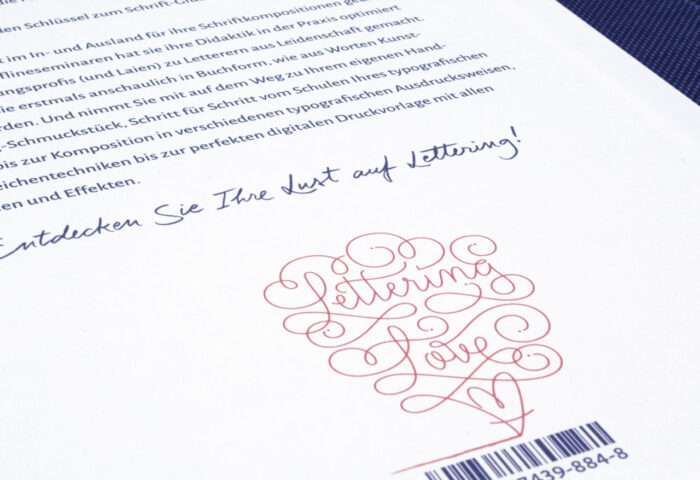 den Schlüssel zum Schrift-
im In- und Ausland für ihre Schriftkompositionen
flineseminaren hat sie ihre Didaktik in der Praxis optimiert
ungsprofis (und Laien) zu Letterern aus Leidenschaft gemacht.
ie erstmals anschaulich in Buchform, wie aus Worten Kunst-
rden. Und nimmt Sie mit auf dem Weg zu Ihrem eigenen Hand-
-Schmuckstück, Schritt für Schritt vom Schulen Ihres typografischen
bis zur Komposition in verschiedenen typografischen Ausdrucksweisen,
eichentechniken bis zur perfekten digitalen Druckvorlage mit allen
en und Effekten.
Entdecken Sie Ihre Lust auf Lettering!
Lettering
Love
7439-884-8